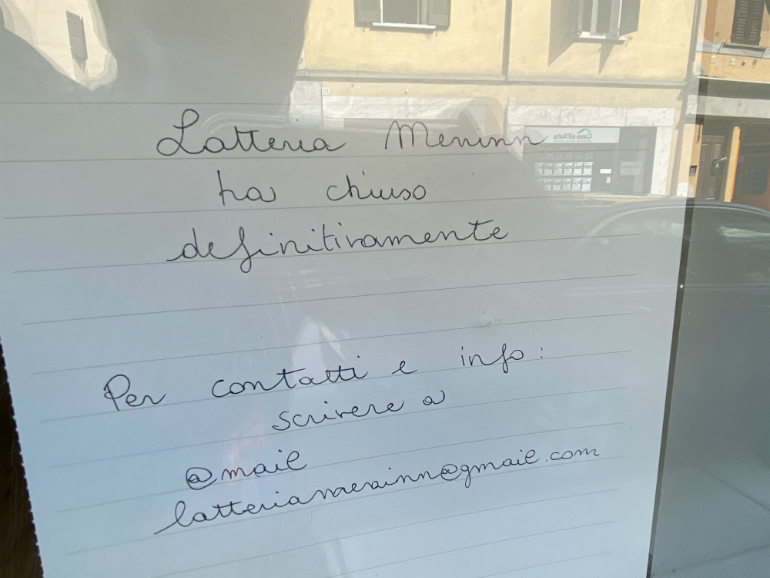 Latteria Meninn
ha chiuso
definitivamente
Per contatti e info:
scrivere a
@mail
latteriameninn@gmail.com